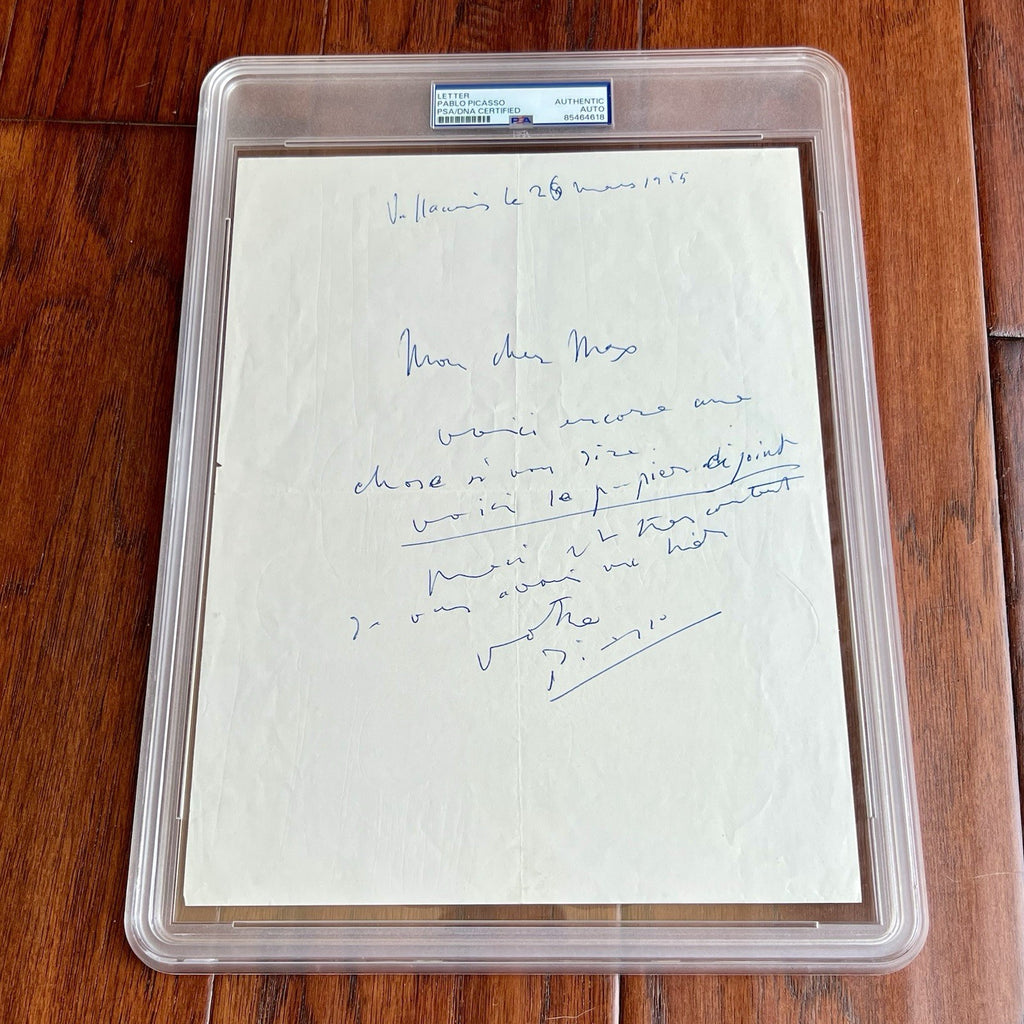 LETTER
PABLO PICASSO
PSA/DNA CERTIFIED
AUTHENTIC
AUTO
85464618
PSA
Vallauris le 26 mars 1955
Mon cher Max
voici encore une
chose à vous dire.
voici le papier ci joint
merci et très content
je vous avoir vu hier
votre
Picasso